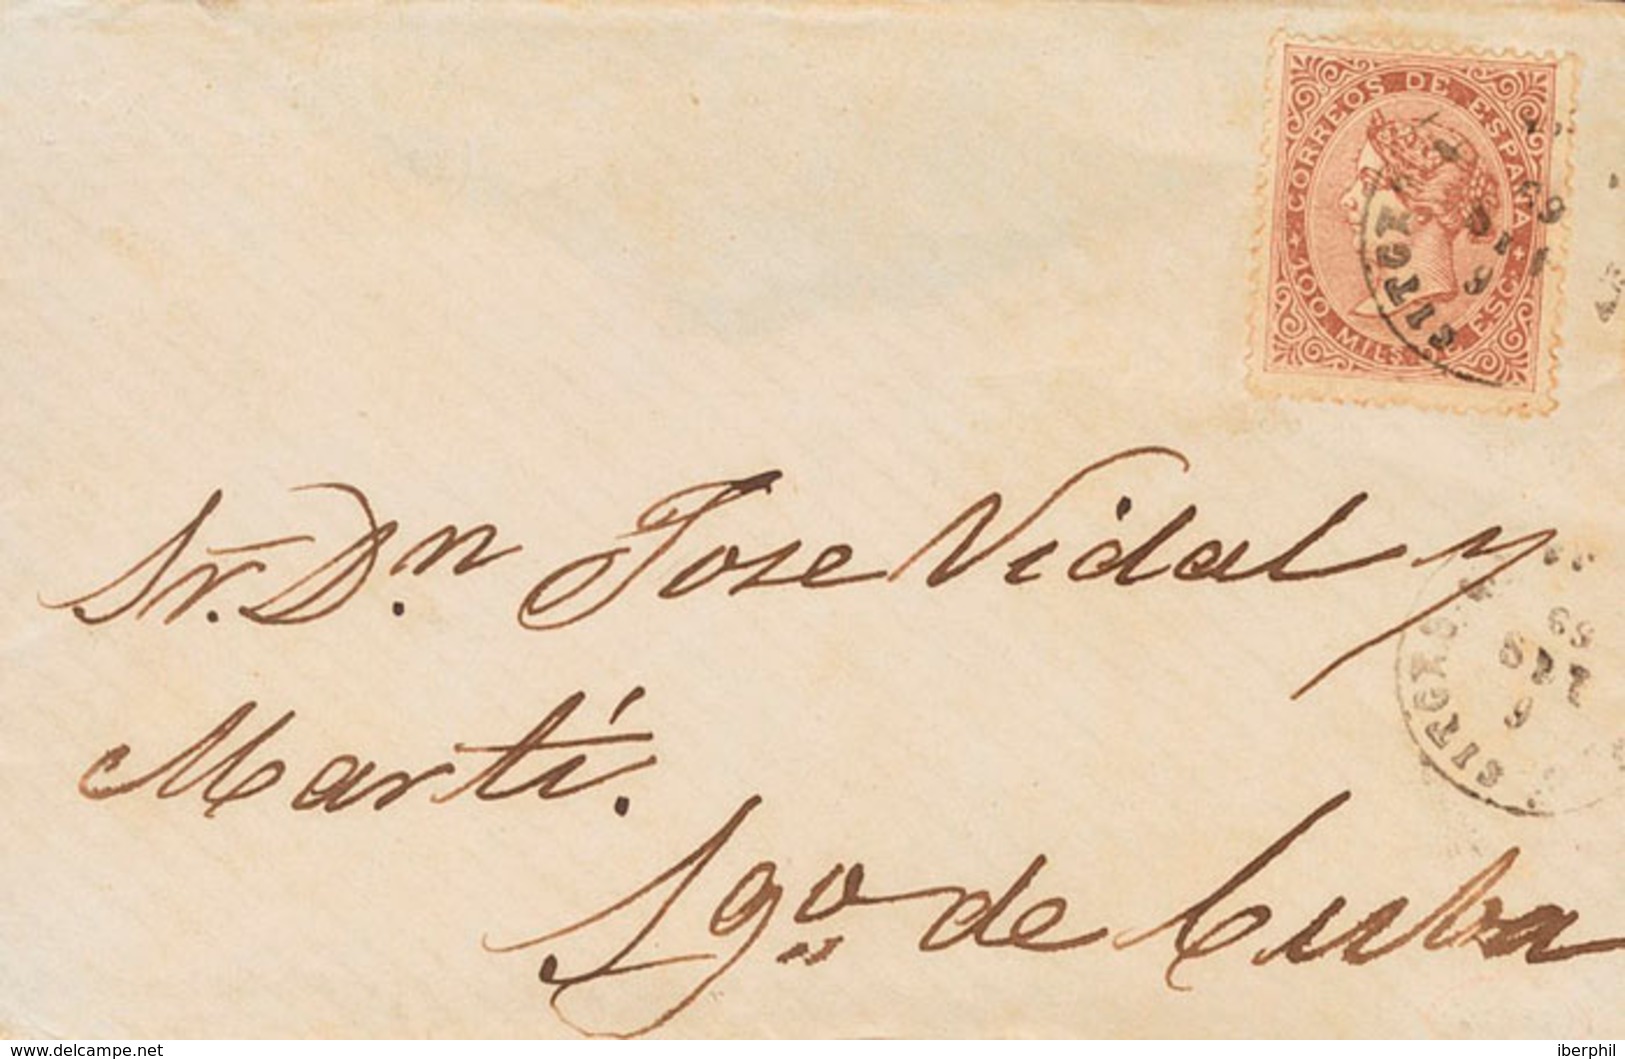 CORREOS DE ESPAÑA
100 MILS. DE ESC.
SITGES
Sr. D.n Jose Vidal y
SITGES
69
Martí.
Sgo. de Cuba
www.delcampe.net
iberphil